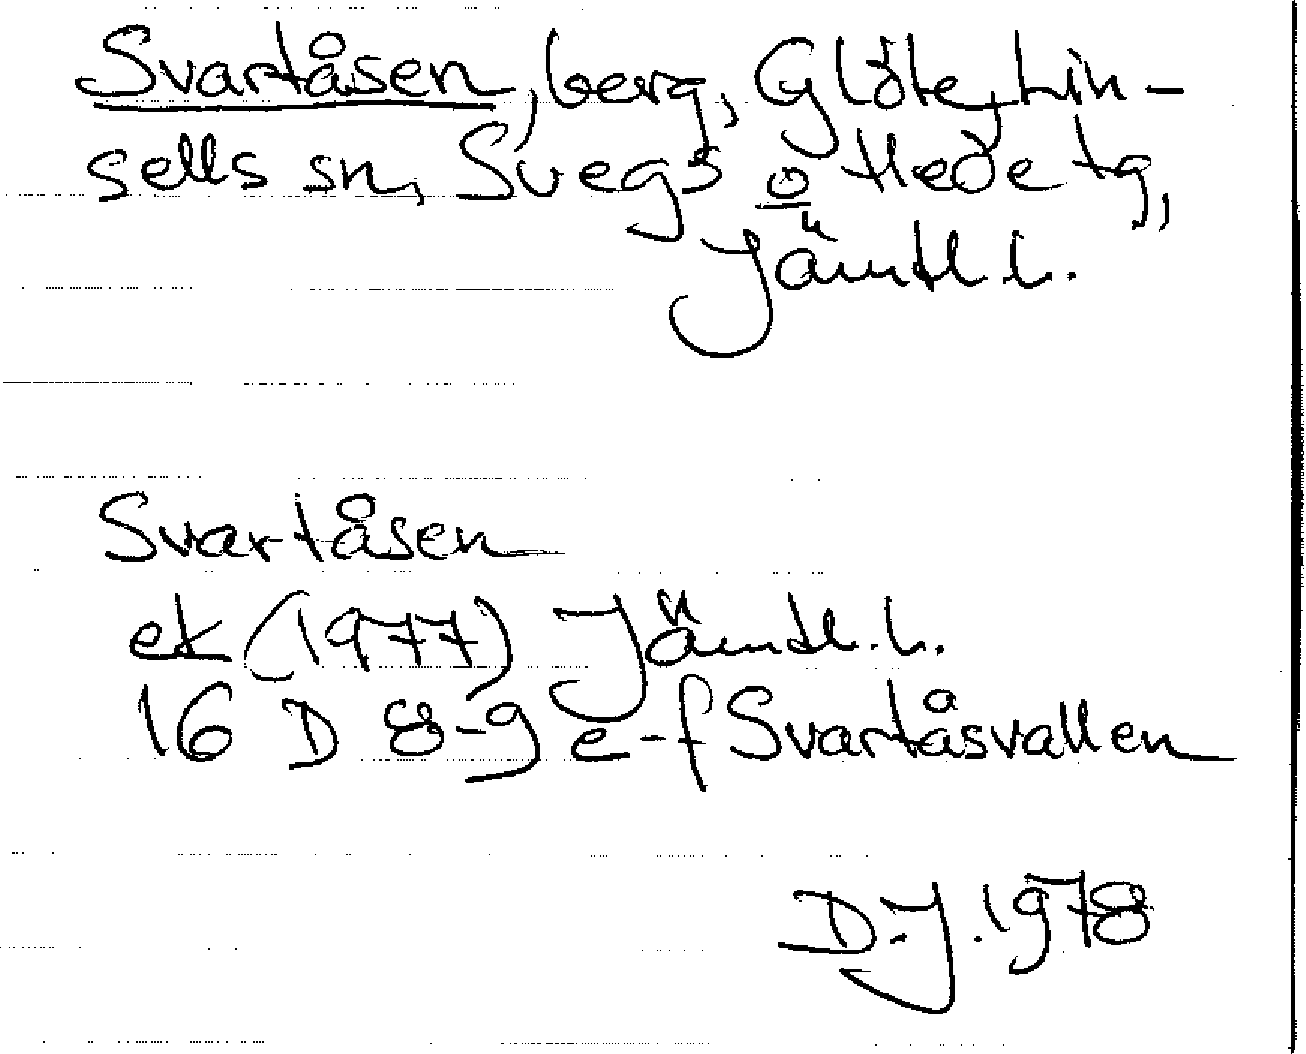 Svartåsen, berg, Glöte, Lin-
sells sn, Svegs o Hede tg,
Jämtl. l.
Svartåsen
ek (1977) Jämtl. l.
16 D 8-9 e-f Svartåsvallen
D.J. 1978